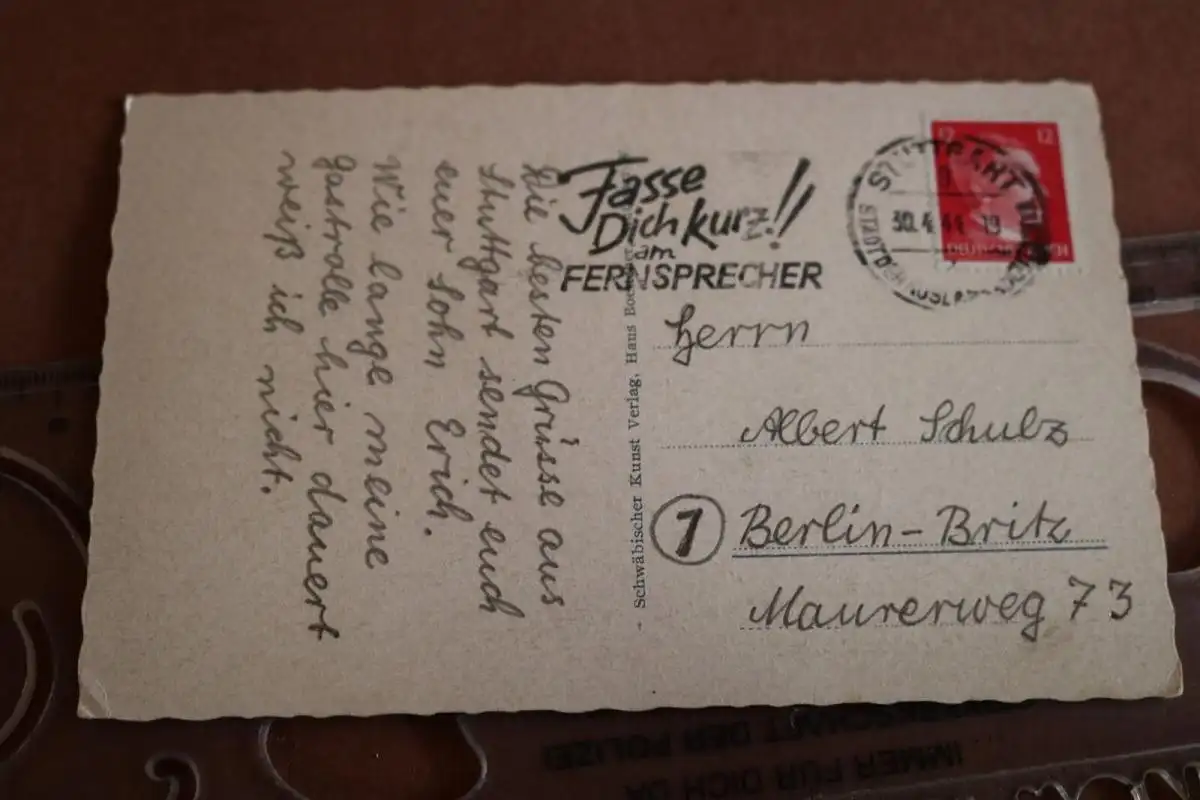 Fasse
Dich kurz!!
am
FERNSPRECHER
12 12
30.4.44. 19
Die besten Grüsse aus
Stuttgart sendet euch
euer Sohn Erich.
Wie lange meine
Gastrolle hier dauert
weiß ich nicht.
Schwäbischer Kunst Verlag, Hans
Herrn
Albert Schulz
7 Berlin-Britz
Maurerweg 73
DER POLIZEI
IMMER FÜR DICH DA